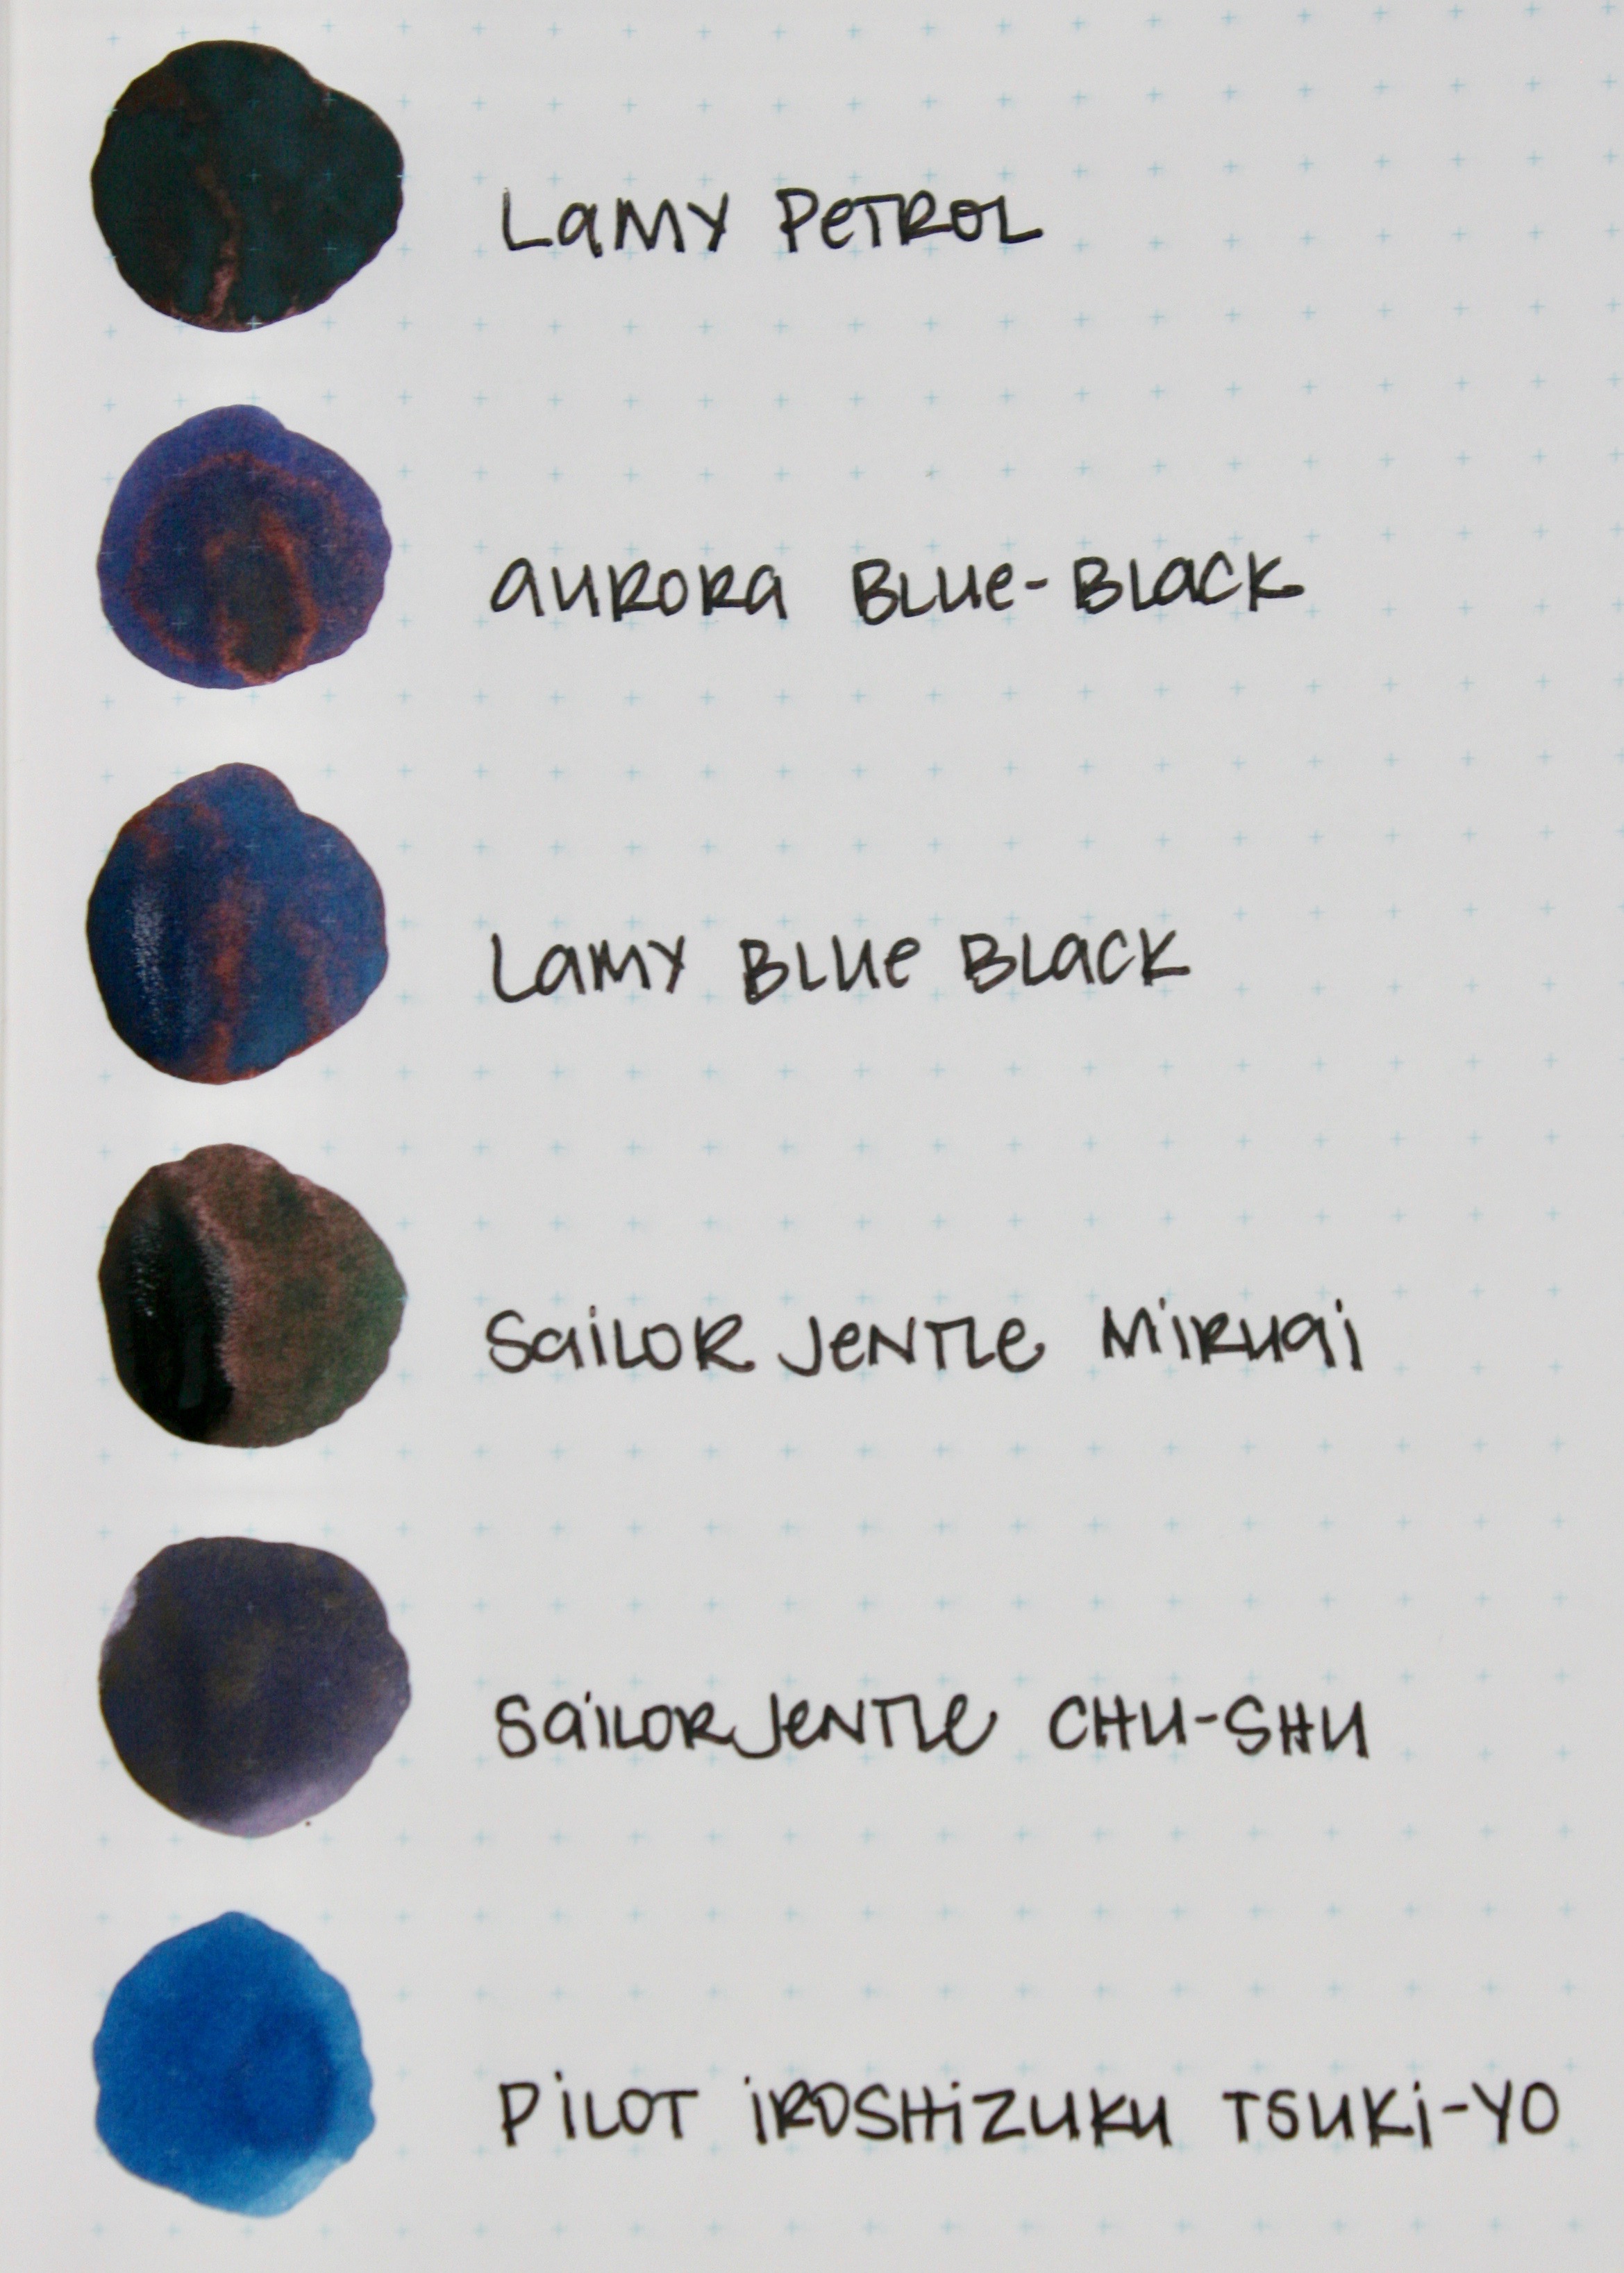 Lamy Petrol
Aurora Blue-Black
Lamy Blue Black
Sailor Jentle Miruai
Sailor Jentle Chu-Shu
Pilot Iroshizuku Tsuki-Yo